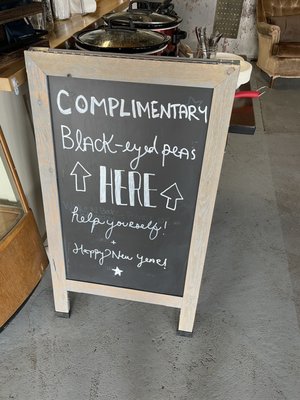 COMPLIMENTARY
BLACK-eyed peas
HERE
help yourself!
+
Happy New Year!